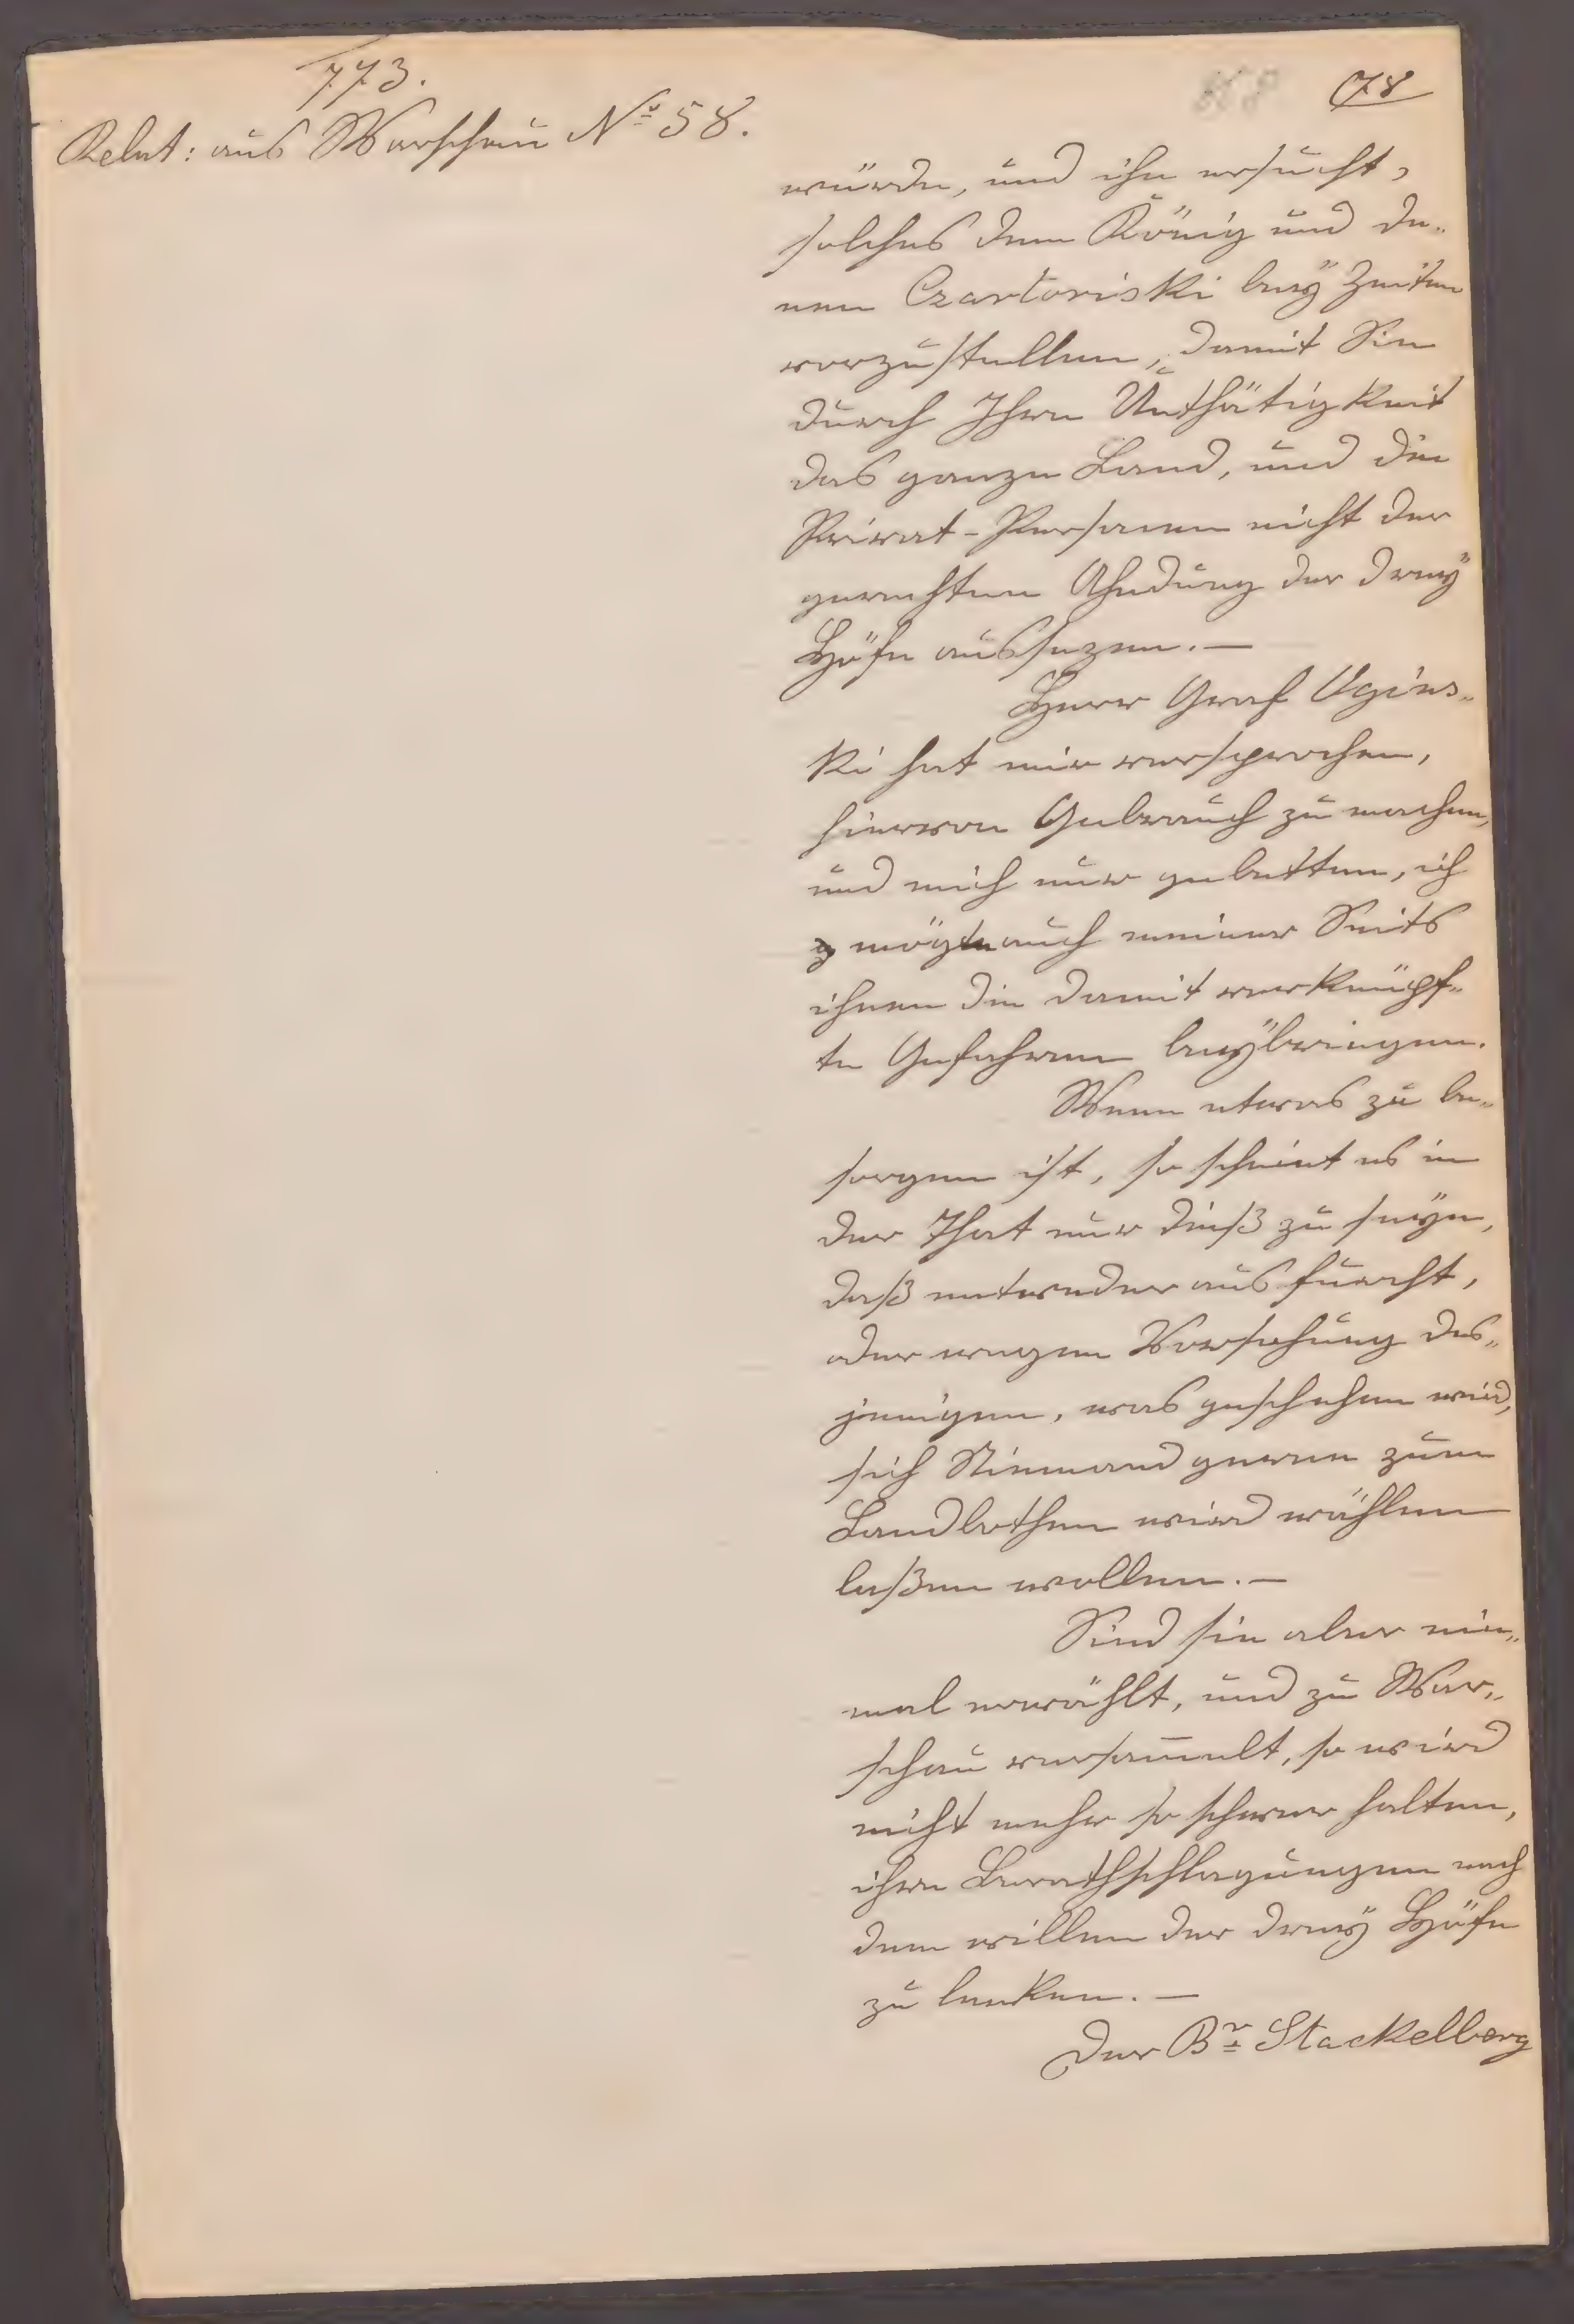 773.
78
Relat: aus Warschau No 58.
würde, und ihn ersucht,
solches dem König und de„
nen Czartoriski bey Zeiten
vorzustellen, damit Sie
durch Ihre Unthätigkeit
das ganze Land, und die
Privat-Personen nicht der
gerechten Ahndung der drey
Höfe aussezen.—
Herr Graf Ogins„
ki hat mir versprochen,
hievon Gebrauch zu machen,
und mich nur gebetten, ich
mögte auch meiner Seits
ihnen die damit verknüpf„
te Gefahren beybringen.
Wenn etwas zu be„
sorgen ist, so scheint es in
der That nur dieß zu seyn,
daß entweder aus furcht,
oder wegen Vorsehung des„
jenigen, was geschehen wird,
sich Niemand gerne zum
Landbothen wird wählen
laßen wollen.—
Sind sie aber ein„
mal erwählt, und zu War„
schau versam̅elt, so wird
nicht mehr so schwer halten,
ihre Berathschlagungen nach
dem willen der drey Höfe
zu lenken.—
Der Br Stackelberg